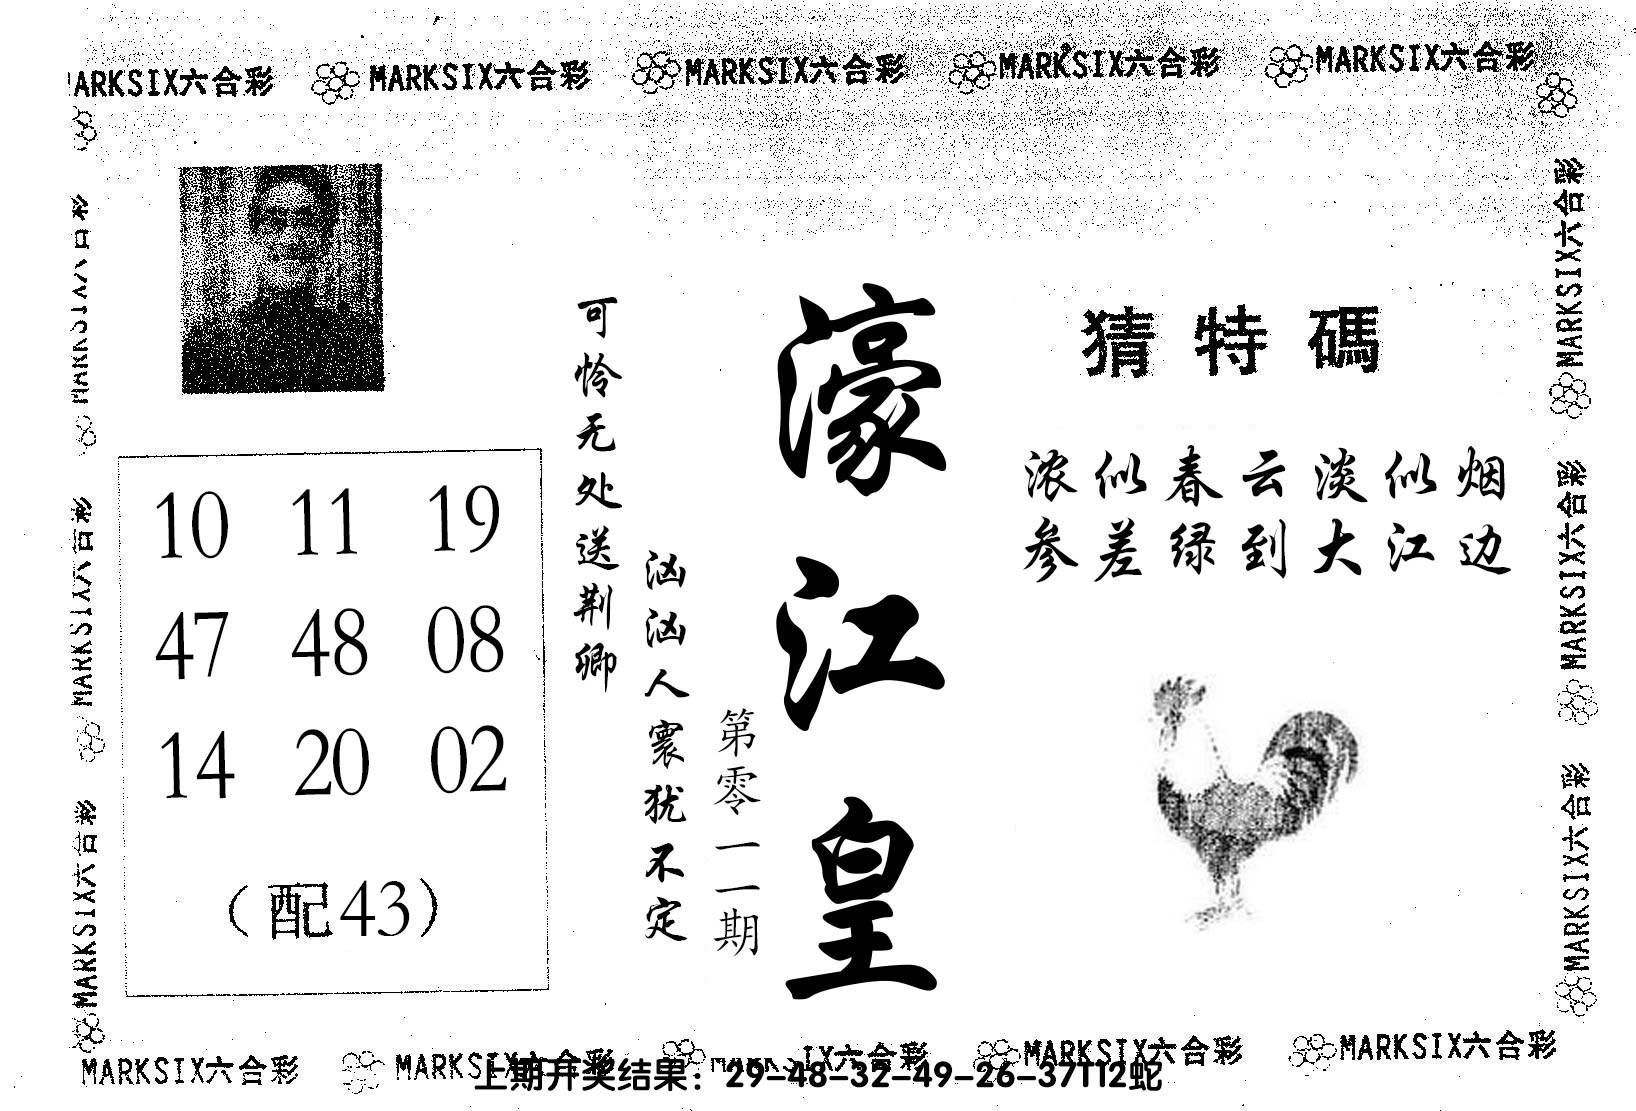 MARKSIX六合彩 MARKSIX六合彩 MARKSIX六合彩 MARKSIX六合彩 MARKSIX六合彩
MARKSIX六合彩
MARKSIX六合彩
MARKSIX六合彩
猜特碼
浓似春云淡似烟
参差绿到大江边
濠江皇
第零一一期
可怜无处送荆卿
汹汹人寰犹不定
10 11 19
47 48 08
14 20 02
(配43)
MARKSIX六合彩
MARKSIX六合彩
MARKSIX六合彩
MARKSIX六合彩 MARKSIX六合彩 MARKSIX六合彩 MARKSIX六合彩 MARKSIX六合彩
上期开奖结果：29-48-32-49-26-37T12蛇